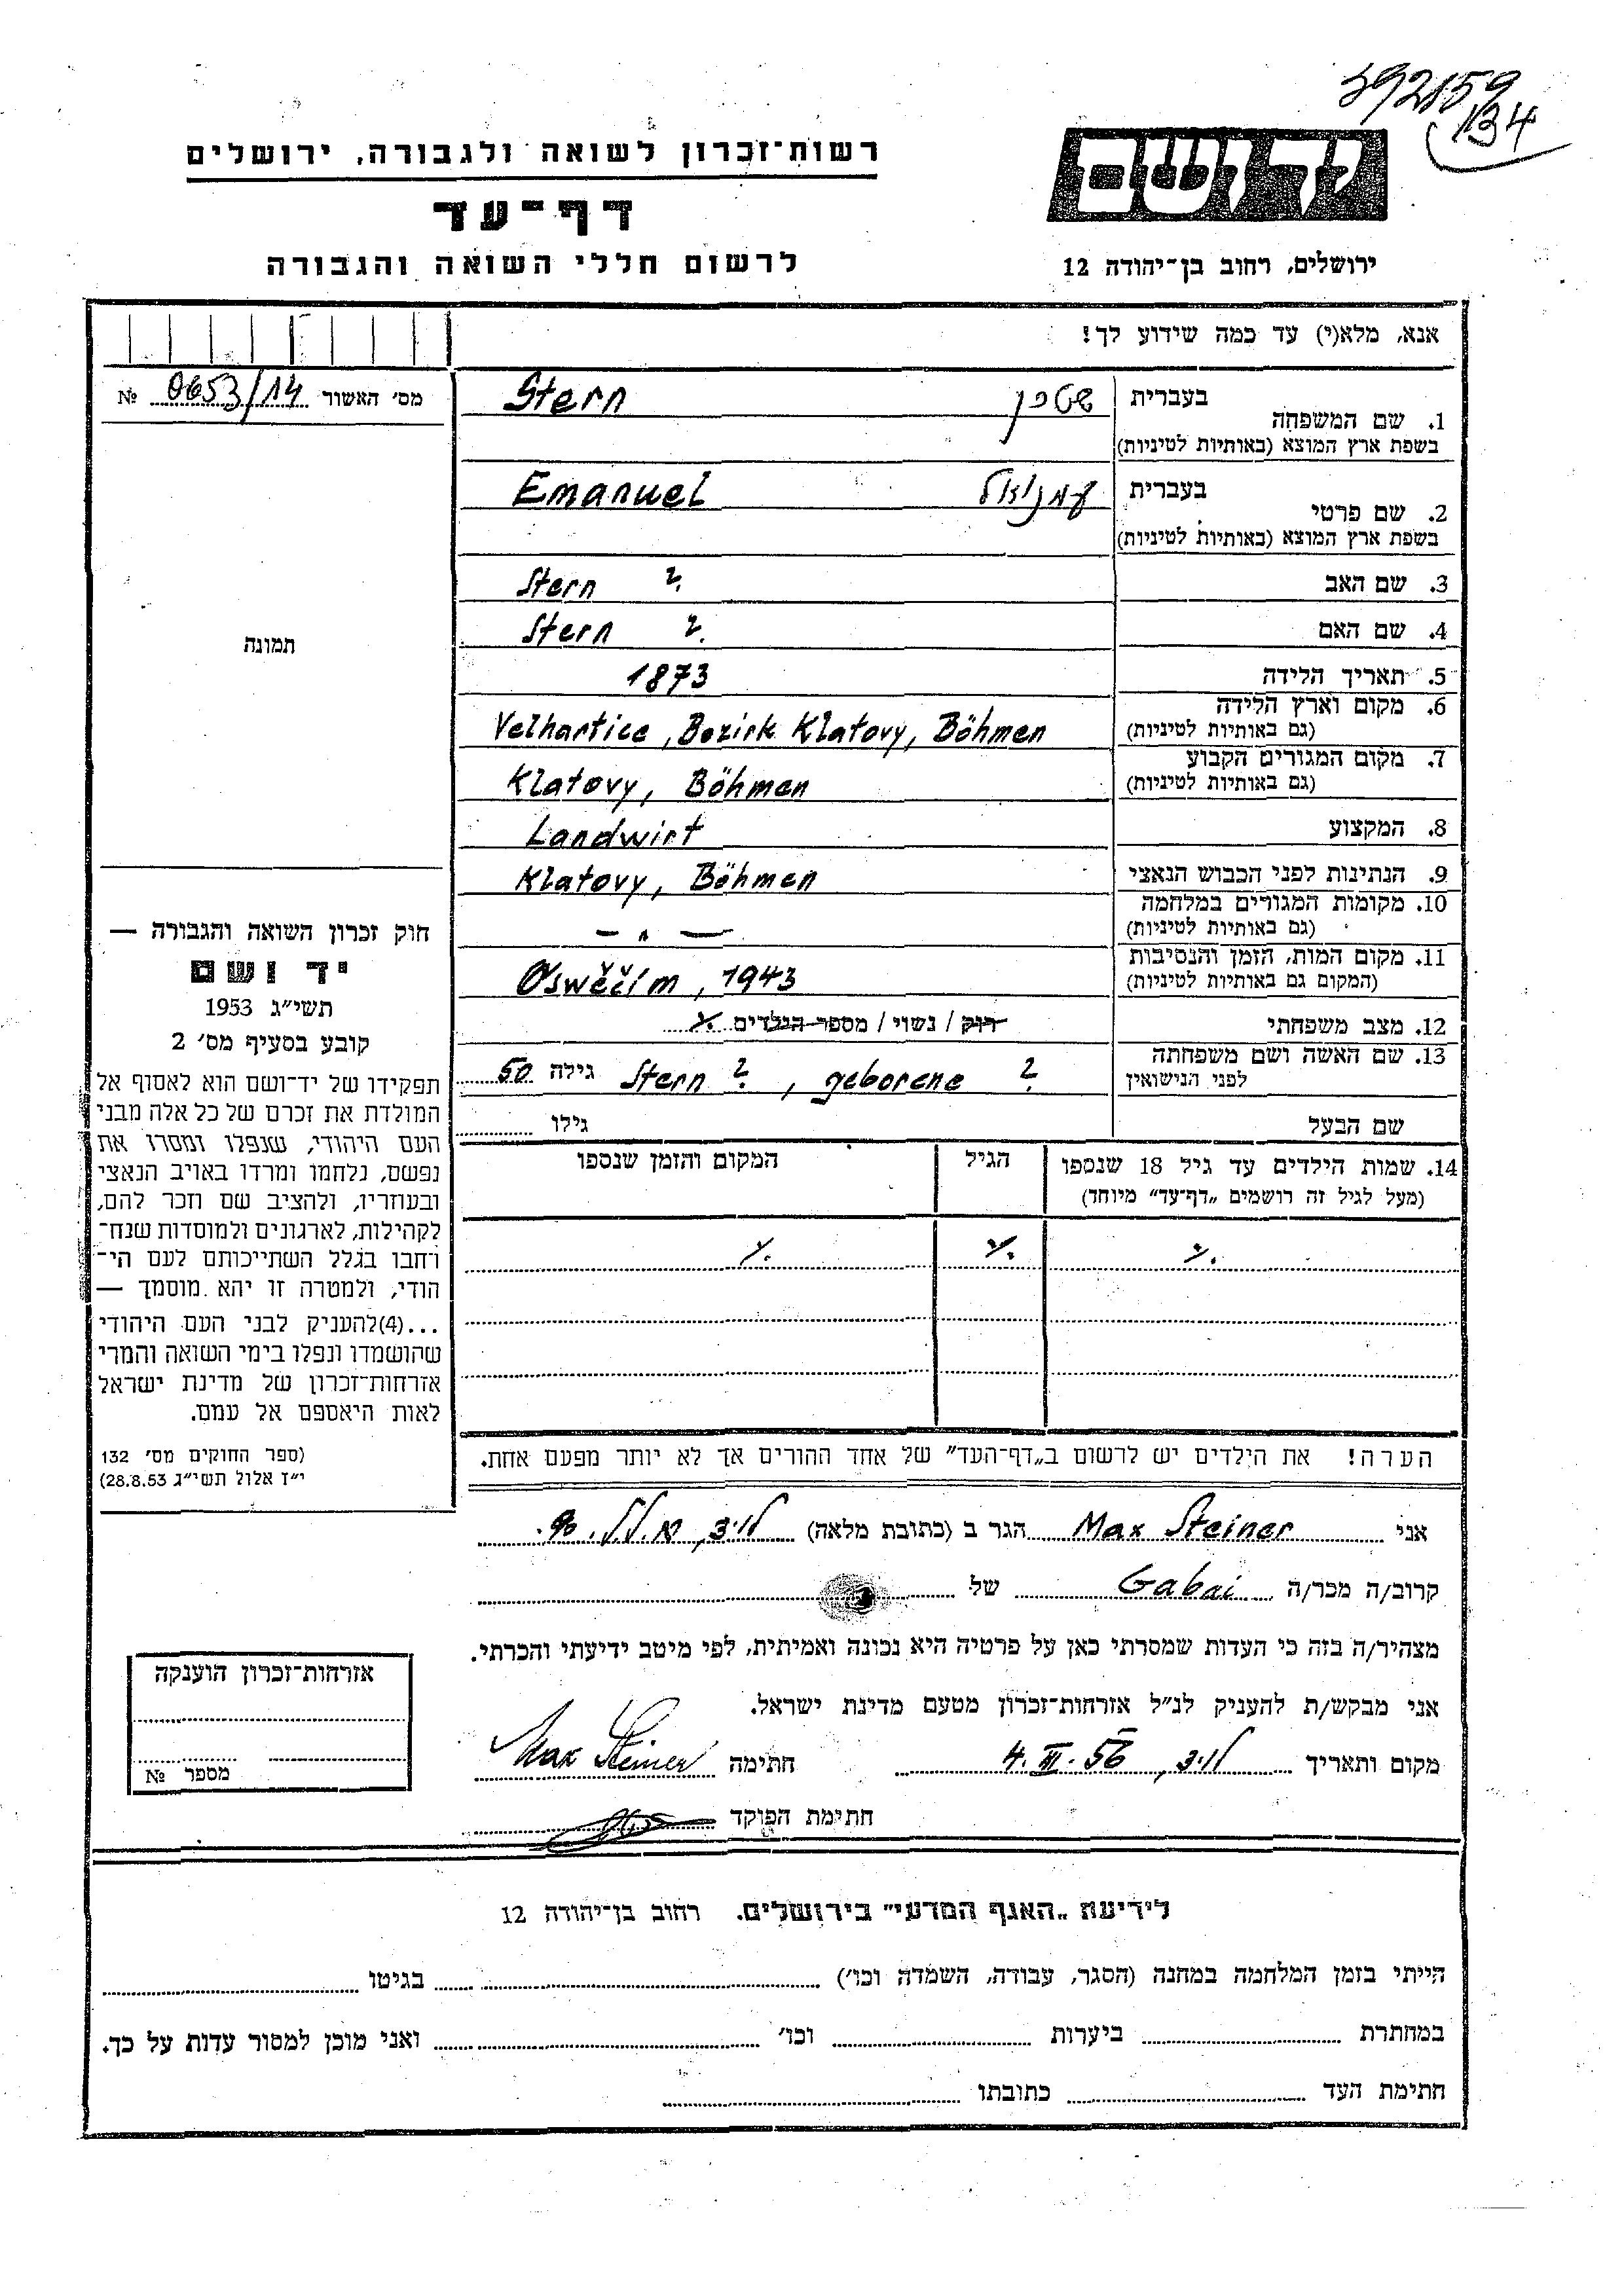 392159
134
רשות־זכרון לשואה ולגבורה, ירושלים
דף־עד
לרשום חללי השואה והגבורה
יד ושם
ירושלים, רחוב בן־יהודה 12
אנא, מלא(י) עד כמה שידוע לך!
מס׳ האשור 0653/14 №
1. שם המשפחה בעברית שטרן Stern
בשפת ארץ המוצא (באותיות לטיניות)
2. שם פרטי בעברית עמנואל Emanuel
בשפת ארץ המוצא (באותיות לטיניות)
3. שם האב Stern ?
4. שם האם Stern ?
5. תאריך הלידה 1873
6. מקום וארץ הלידה Velhartice, Bezirk Klatovy, Böhmen
(גם באותיות לטיניות)
7. מקום המגורים הקבוע Klatovy, Böhmen
(גם באותיות לטיניות)
8. המקצוע Landwirt
9. הנתינות לפני הכבוש הנאצי Klatovy, Böhmen
10. מקומות המגורים במלחמה — " —
(גם באותיות לטיניות)
11. מקום המות, הזמן והנסיבות Oswěčím, 1943
(המקום גם באותיות לטיניות)
12. מצב משפחתי רוק / נשוי / מספר הילדים
13. שם האשה ושם משפחתה Stern ?, geborene ? גילה 50
לפני הנישואין
שם הבעל גילו
14. שמות הילדים עד גיל 18 שנספו הגיל המקום והזמן שנספו
(מעל לגיל זה רושמים „דף־עד״ מיוחד)
הערה! את הילדים יש לרשום ב„דף־העד״ של אחד ההורים אך לא יותר מפעם אחת.
תמונה
חוק זכרון השואה והגבורה —
יד ושם
תשי״ג 1953
קובע בסעיף מס׳ 2
תפקידו של יד־ושם הוא לאסוף אל
המולדת את זכרם של כל אלה מבני
העם היהודי, שנפלו ומסרו את
נפשם, נלחמו ומרדו באויב הנאצי
ובעוזריו, ולהציב שם וזכר להם,
לקהילות, לארגונים ולמוסדות שנח־
רבו בגלל השתייכותם לעם הי־
הודי, ולמטרה זו יהא מוסמך —
...(4)להעניק לבני העם היהודי
שהושמדו ונפלו בימי השואה והמרי
אזרחות־זכרון של מדינת ישראל
לאות היאספם אל עמם.
(ספר החוקים מס׳ 132
י״ז אלול תשי״ג 28.8.53)
אני Max Steiner הגר ב (כתובת מלאה)
קרוב/ה מכר/ה Gabai של
מצהיר/ה בזה כי העדות שמסרתי כאן על פרטיה היא נכונה ואמיתית, לפי מיטב ידיעתי והכרתי.
אני מבקש/ת להעניק לנ״ל אזרחות־זכרון מטעם מדינת ישראל.
מקום ותאריך 4. III. 56 חתימה Max Steiner
חתימת הפוקד
אזרחות־זכרון הוענקה
מספר №
לידיעת „האגף המדעי״ בירושלים. רחוב בן־יהודה 12
הייתי בזמן המלחמה במחנה (הסגר, עבודה, השמדה וכו׳) בגיטו
במחתרת ביערות וכו׳ ואני מוכן למסור עדות על כך.
חתימת העד כתובתו